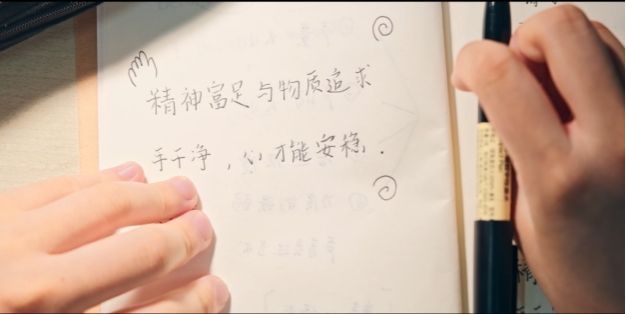 精神富足与物质追求
手干净，心才能安稳.